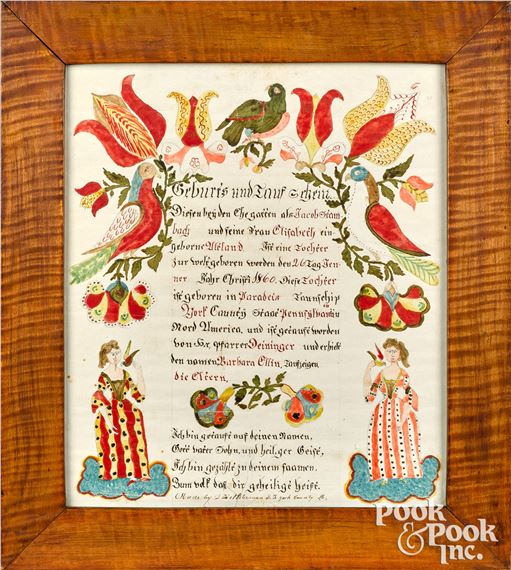 Geburts und Tauf Schein.
Diesen beyden Ehegatten als Jacob Stam
bach und seine Frau Elisabeth ein
geborne Altland. Ist eine Tochter
zur welt geboren worden den 26 Tag Jen
ner Jahr Christi 1860. Diese Tochter
ist geboren in Paradeis Taunschip
York Caunty Staat Pennsylvania in
Nord America, und ist getauft worden
von Hr. Pfarrer Deininger und erhielt
den namen Barbara Ellin, Taufzeigen
die Eltern.
Ich bin getauft auf deinen Namen,
Gott vater Sohn, und heilger Geist,
Ich bin gezählt zu deinem saamen.
Zum volk das dir geheiligt heist.
Made by York County Pa.
POOK
& POOK
INC.